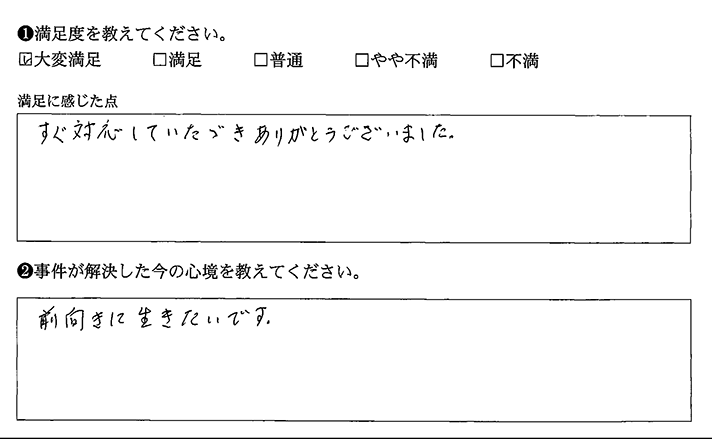 ❶満足度を教えてください。
☑大変満足 □満足 □普通 □やや不満 □不満
満足に感じた点
すぐ対応していたづきありがとうございました。
❷事件が解決した今の心境を教えてください。
前向きに生きたいです。